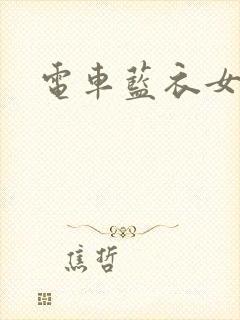 電車藍衣女
焦哲